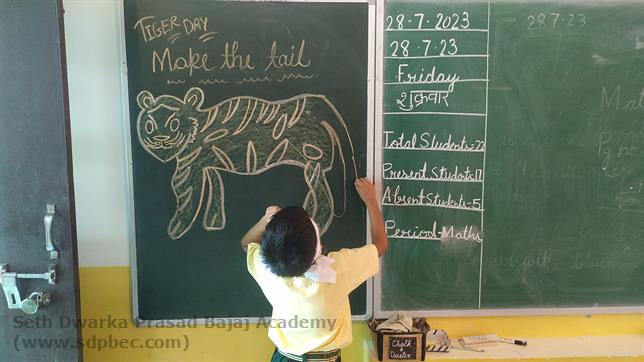 TIGER DAY
Make the tail
28.7.2023
28.7.23
Friday
शुक्रवार
Total Students-22
Present Students-17
Absent Students-5
Period-Maths
28.7.23
Chalk
&
Duster
Seth Dwarka Prasad Bajaj Academy
(www.sdpbec.com)